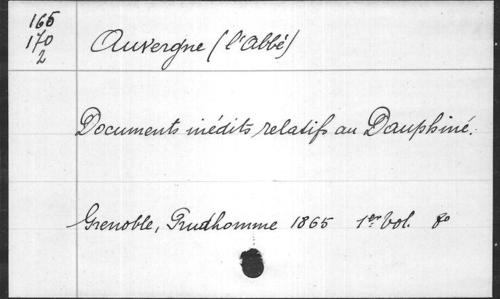 165
170
2
Auvergne (l'abbé)
Documents inédits relatifs au Dauphiné.
Grenoble, Prudhomme 1865 1er Vol. 8o